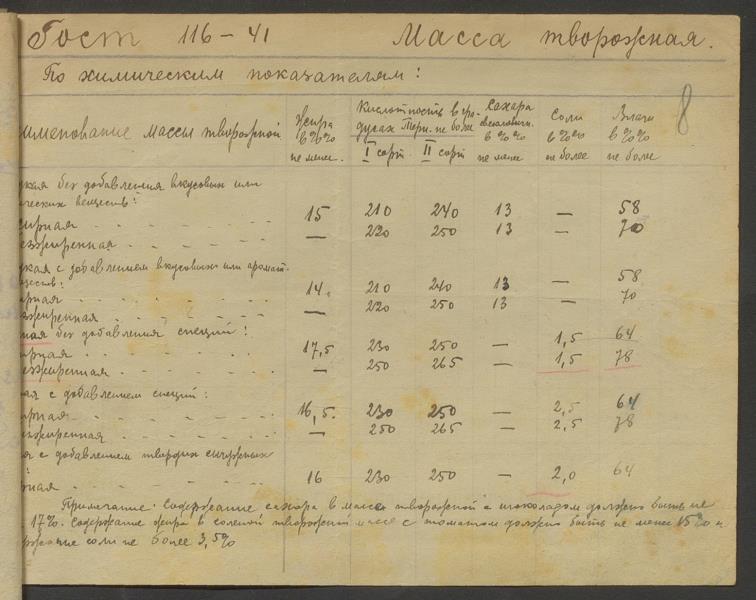 Гост 116-41 Масса творожная.
По химическим показателям:
8
именование массы творожной Жира в %% не менее. Кислотность в градусах Терн. не боле I сорт II сорт Сахара в %% не менее Соли в %% не более Влаги в %% не более
дкая без добавления вкусовых или
ических веществ:
ирная - - - - 15 210 240 13 — 58
езжиренная - - - - — 220 250 13 — 70
дкая с добавлением вкусовых или аромат.
ществ:
ирная - - - - 14. 210 240 13 — 58
езжиренная - - - - — 220 250 13 — 70
ная без добавления специй:
ирная - - - - 17,5 230 250 — 1,5 64
езжиренная - - - - — 250 265 — 1,5 78
ая с добавлением специй:
ирная - - - - 16,5. 230 250 — 2,5 64
зжиренная - - - - — 250 265 — 2,5 78
ая с добавлением твердых сычужных
рная - - - - 16 230 250 — 2,0 64
Примечание: Содержание сахара в массе творожной с шоколадом должно быть не
17%. Содержание жира в соленой творожной массе с томатом должно быть не менее 15% и
ржание соли не более 3,5%